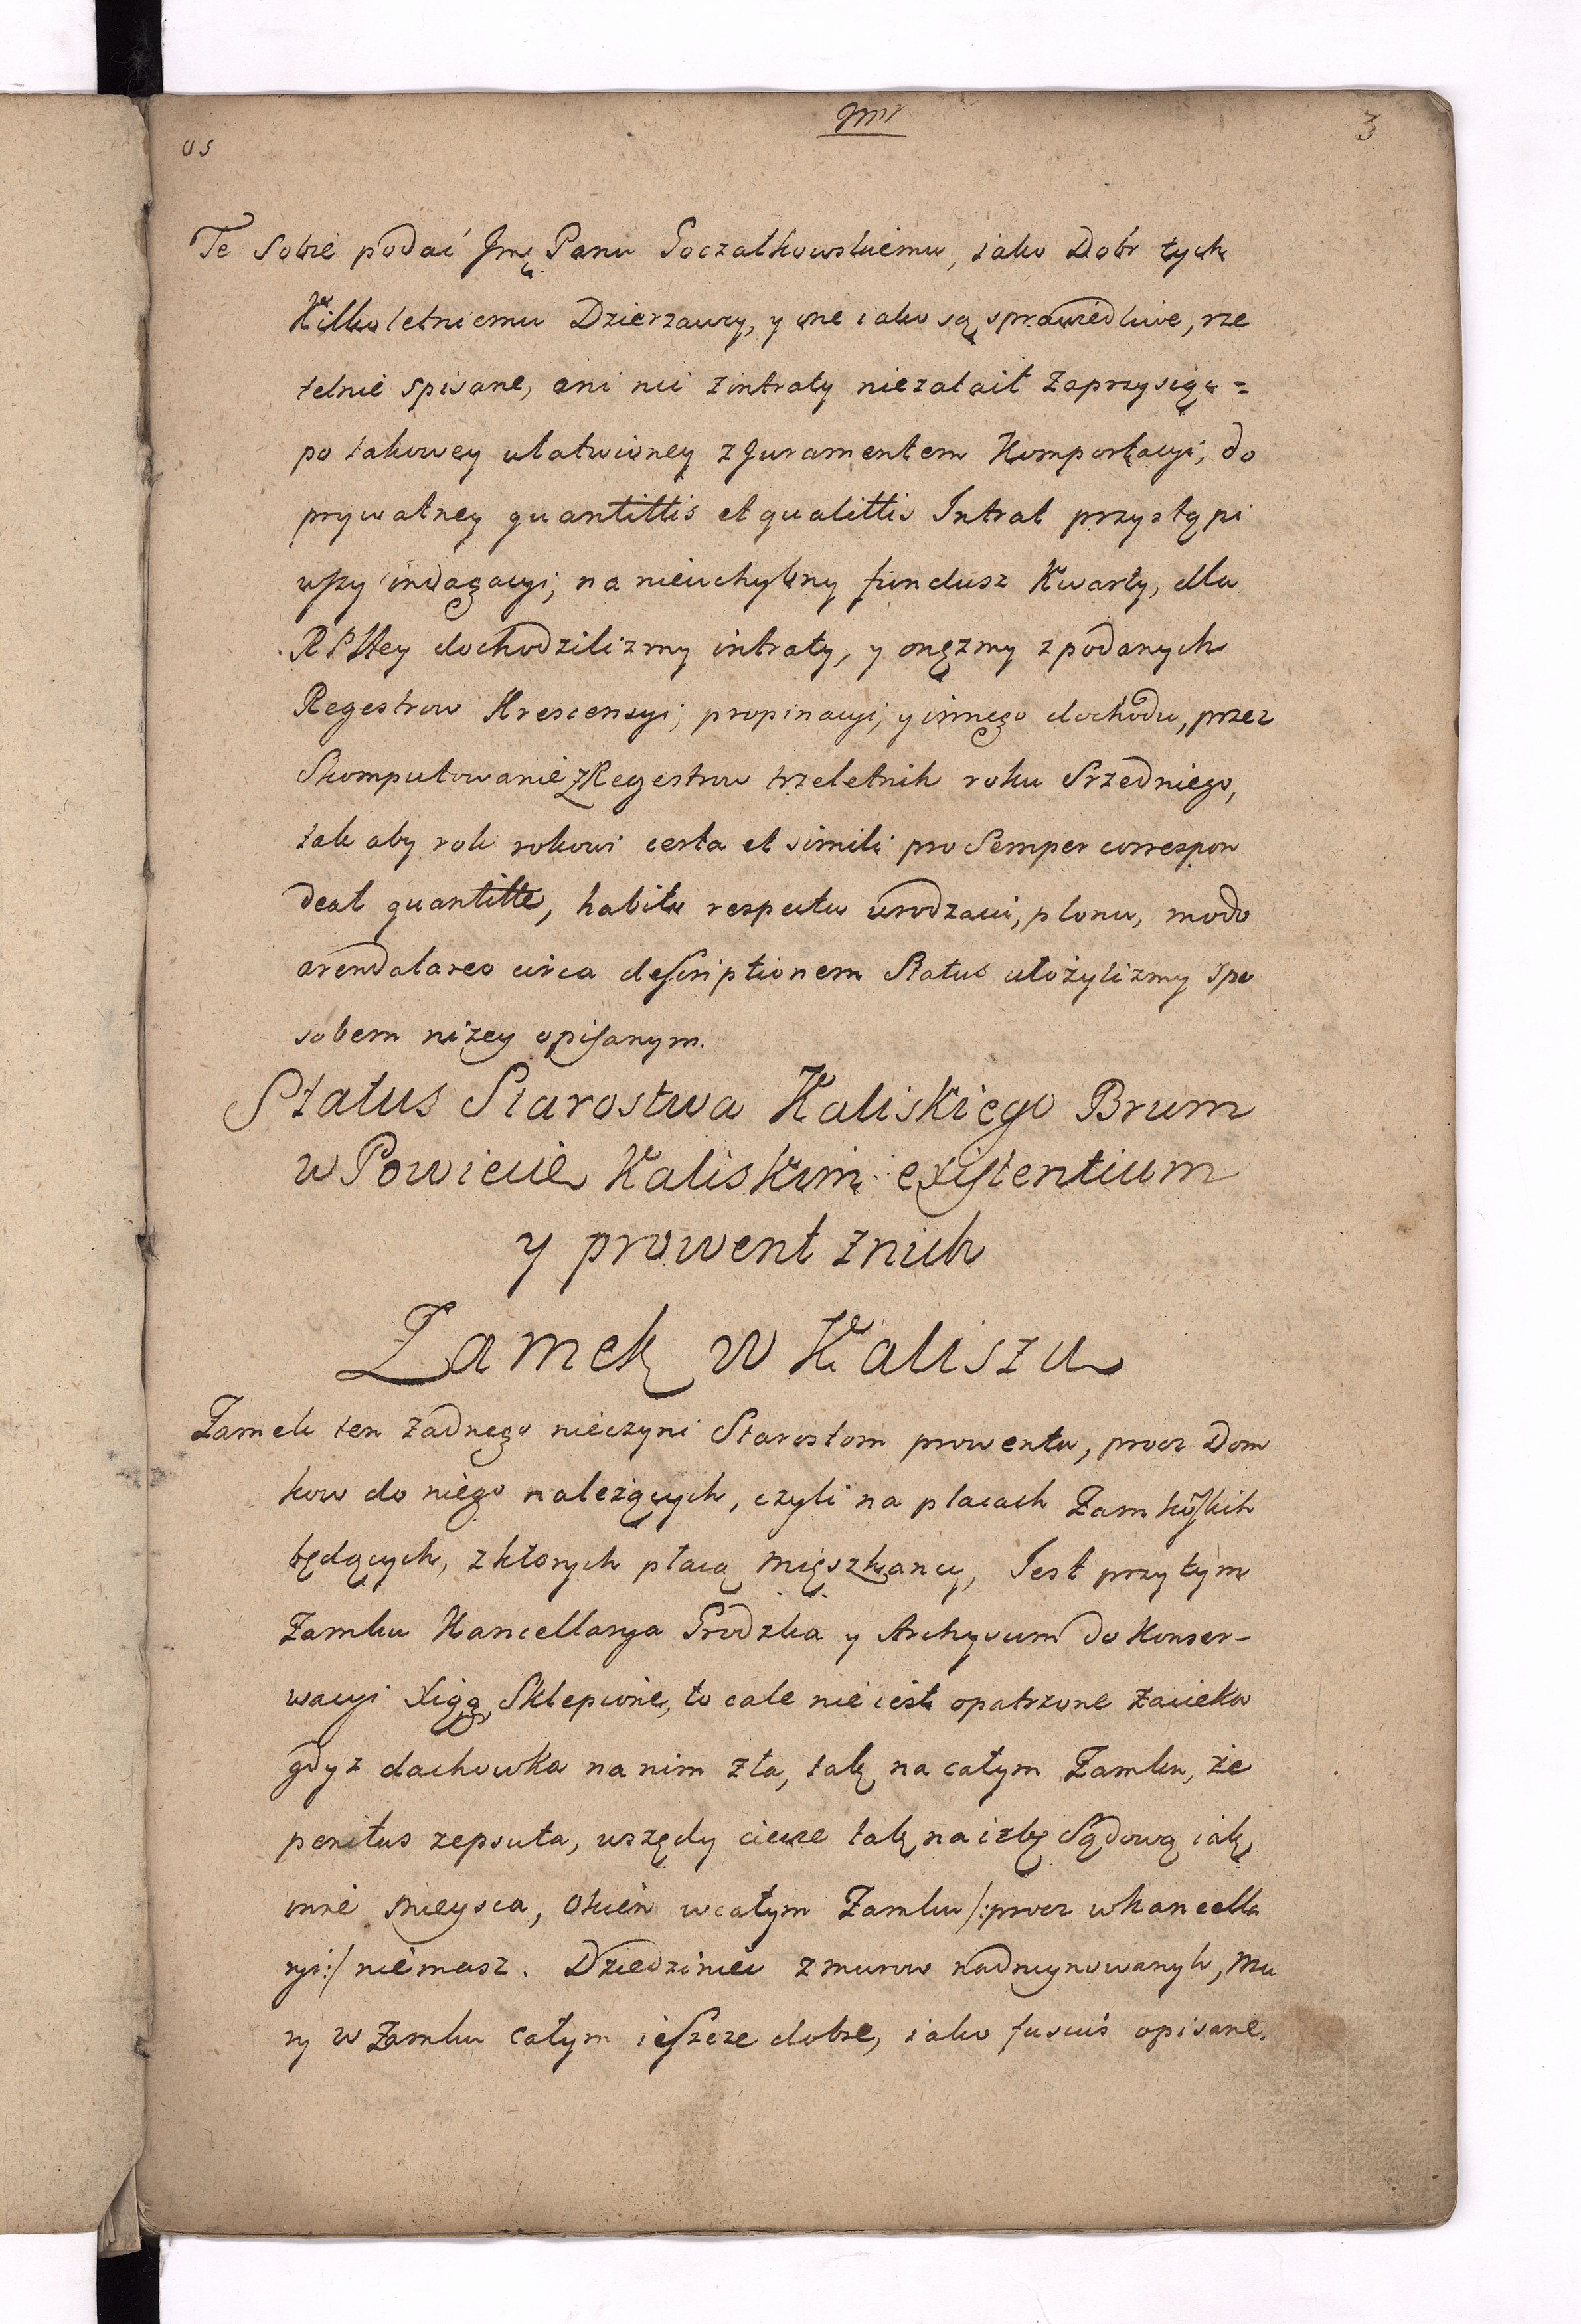 3
Te sobie podać Jmę Panu Poczałkowskiemu, iako Dobr tych
Kilkuletniemu Dzierzawcy, y one iako są sprawiedliwe, rze
telnie spisane, ani nic zintraty niezataił zaprzysiąc =
po takowey ułatwioney z Juramentem Komportacyi, do
prywatney quantittis et qualittis Intrat przystąpi
wszy indagacyi, na nieuchybny fundusz Kwarty, dla
RPltey dochodzilizmy intraty, y onęzmy zpodanych
Regestrow Krescensyi, propinacyi, y innego dochodu, przez
Skomputowanie z Regestrow trzeletnich roku Srzedniego,
tak aby rok rokowi certa et simili pro Semper correspon
deat quantitte, habito respectu urodzaui, plonu, modo
arendatareo circa descriptionem Status ułożylizmy spo
sobem niżey opisanym.
Status Starostwa Kaliskiego Brum
w Powiecie Kaliskim existentium
y prowent znich
Zamek w Kaliszu
Zamek ten żadnego nieczyni Starostom prowentu, procz Dom
kow do niego należących, czyli na placach Zamkoskich
będących, zktorych płacą mięszkancy, Jest przytym
Zamku Kancellarya Grodzka y Archyvum do Konser-
wacyi Xiąg Sklepione, to cale nie iest opatrzone zacieka
gdyz dachowka na nim zła, tak na całym Zamku, że
penitus zepsuta, wszędy ciecze tak na izbę Sądową iak
inne mieysca, Okien wcałym Zamku /:procz wkancella
ryi:/ niemasz. Dziedziniec z murow nadruynowanych, Mu
ry w Zamku całym ieszcze dobre, iako fusius opisane.